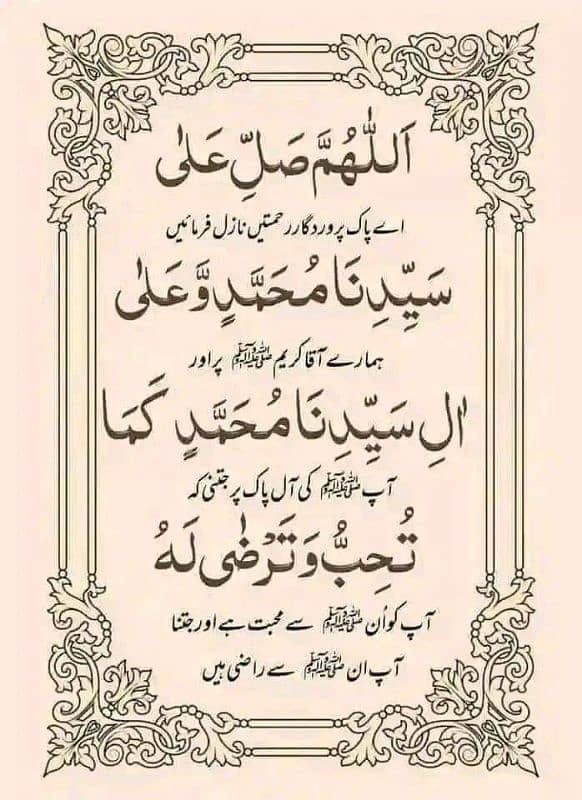 اَللّٰهُمَّ صَلِّ عَلٰى
اے پاک پروردگار رحمتیں نازل فرمائیں
سَيِّدِنَا مُحَمَّدٍ وَّعَلٰى
ہمارے آقا کریم ﷺ پر اور
اٰلِ سَيِّدِنَا مُحَمَّدٍ كَمَا
آپ ﷺ کی آل پاک پر جتنی کہ
تُحِبُّ وَتَرْضٰى لَهٗ
آپ کو اُن ﷺ سے محبت ہے اور جتنا
آپ ان ﷺ سے راضی ہیں